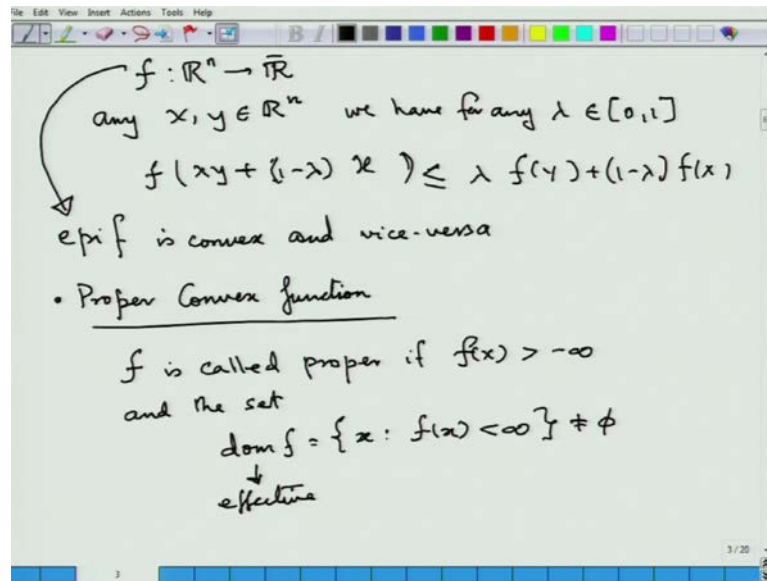 File Edit View Insert Actions Tools Help
B I
f : ℝⁿ → ℝ̄
any x, y ∈ ℝⁿ we have for any λ ∈ [0,1]
f (λy + (1-λ) x ) ≤ λ f(y) + (1-λ) f(x)
epi f is convex and vice-versa
• Proper Convex function
f is called proper if f(x) > -∞
and the set
dom f = { x : f(x) < ∞ } ≠ φ
↓
effective
3/20
3